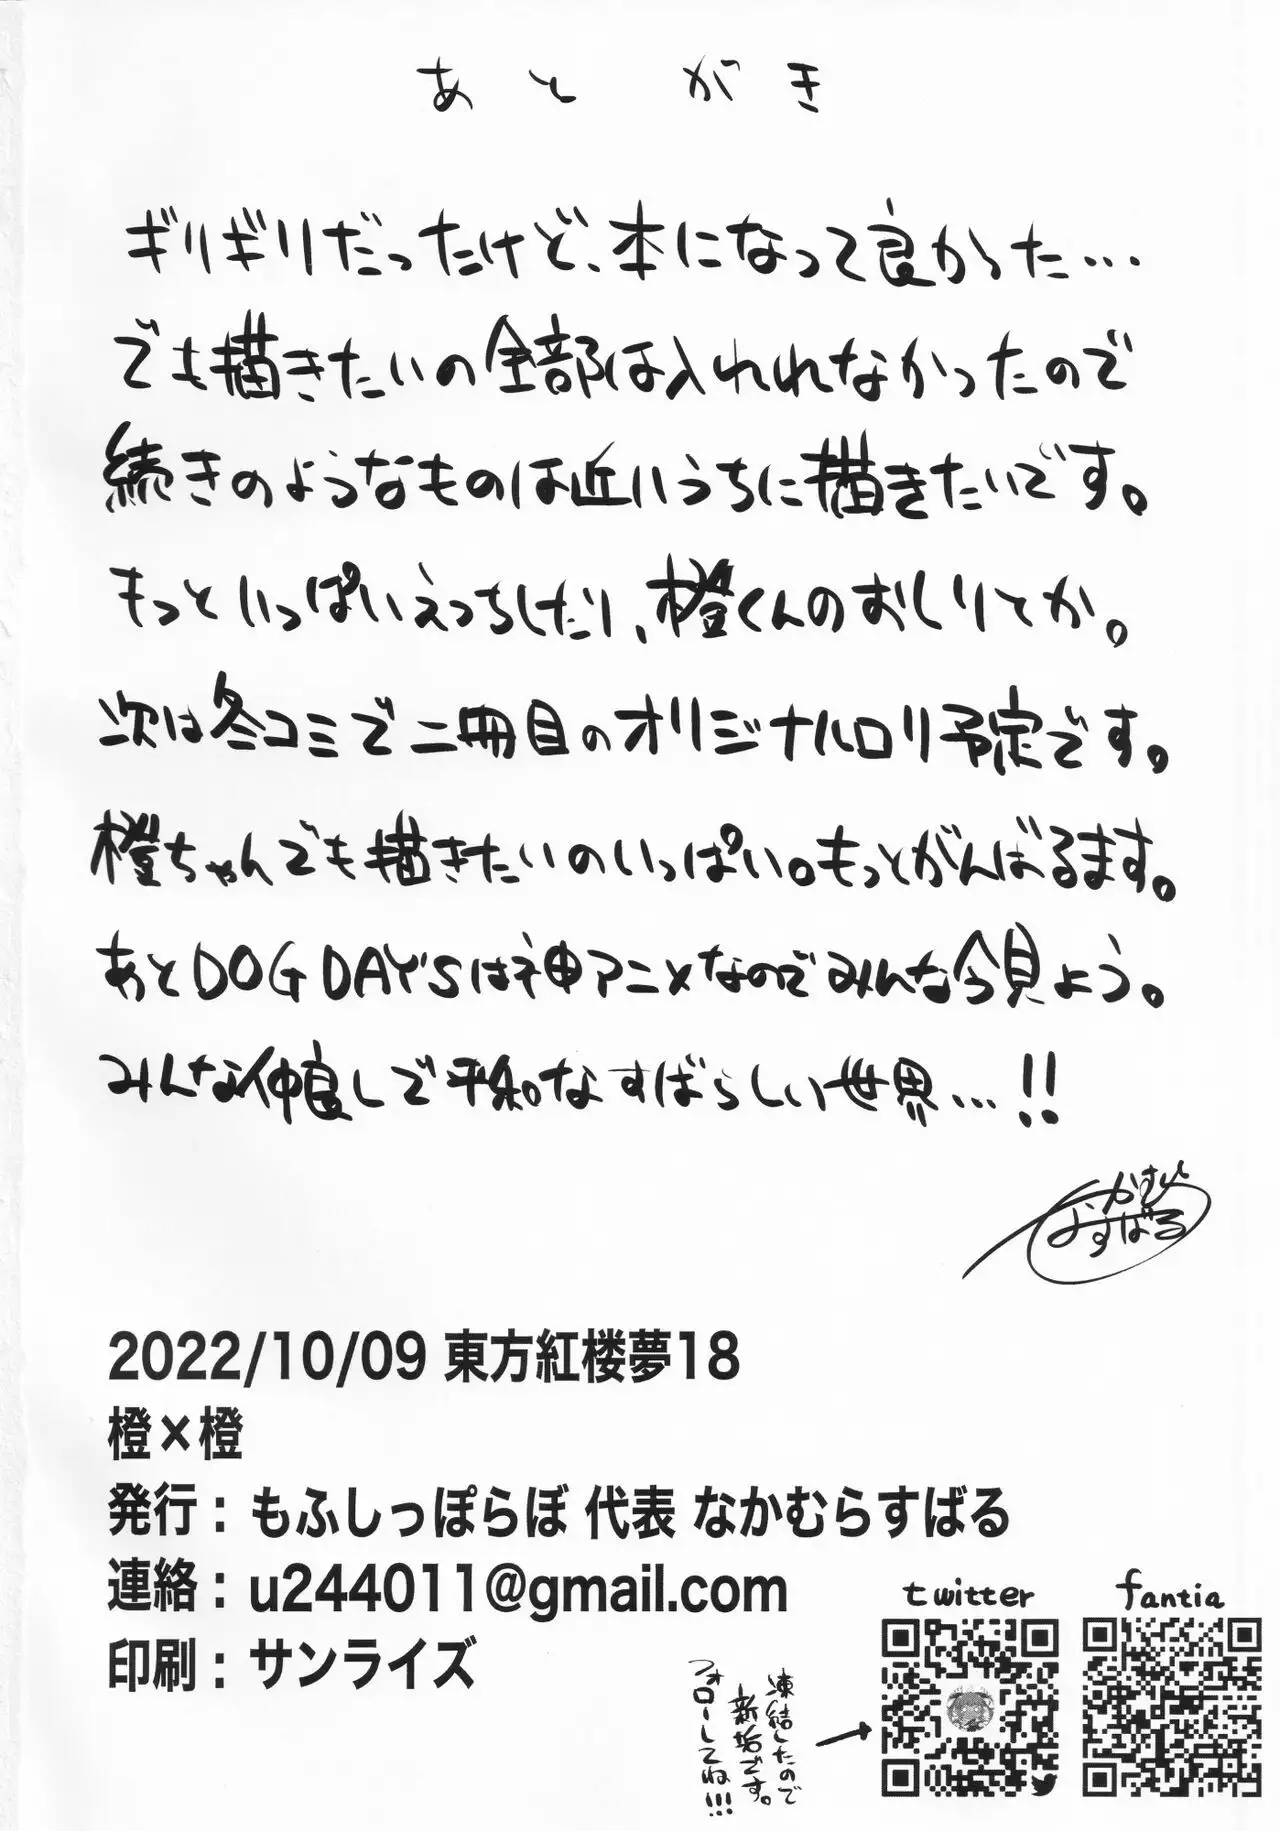 あとがき
ギリギリだったけど、本になって良かった…
でも描きたいの全部は入れれなかったので
続きのようなものは近いうちに描きたいです。
もっといっぱいえっちしたり、橙くんのおしりとか。
次は冬コミで二冊目のオリジナルロリ予定です。
橙ちゃんでも描きたいのいっぱい。もっとがんばるます。
あとDOG DAYSは神アニメなのでみんな今見よう。
みんな仲良しで平和なすばらしい世界…!!
2022/10/09 東方紅楼夢18
橙×橙
発行：もふしっぽらぼ 代表 なかむらすばる
連絡：u244011@gmail.com
印刷：サンライズ
凍結したので
新垢です。
フォローしてね!!!
twitter
fantia